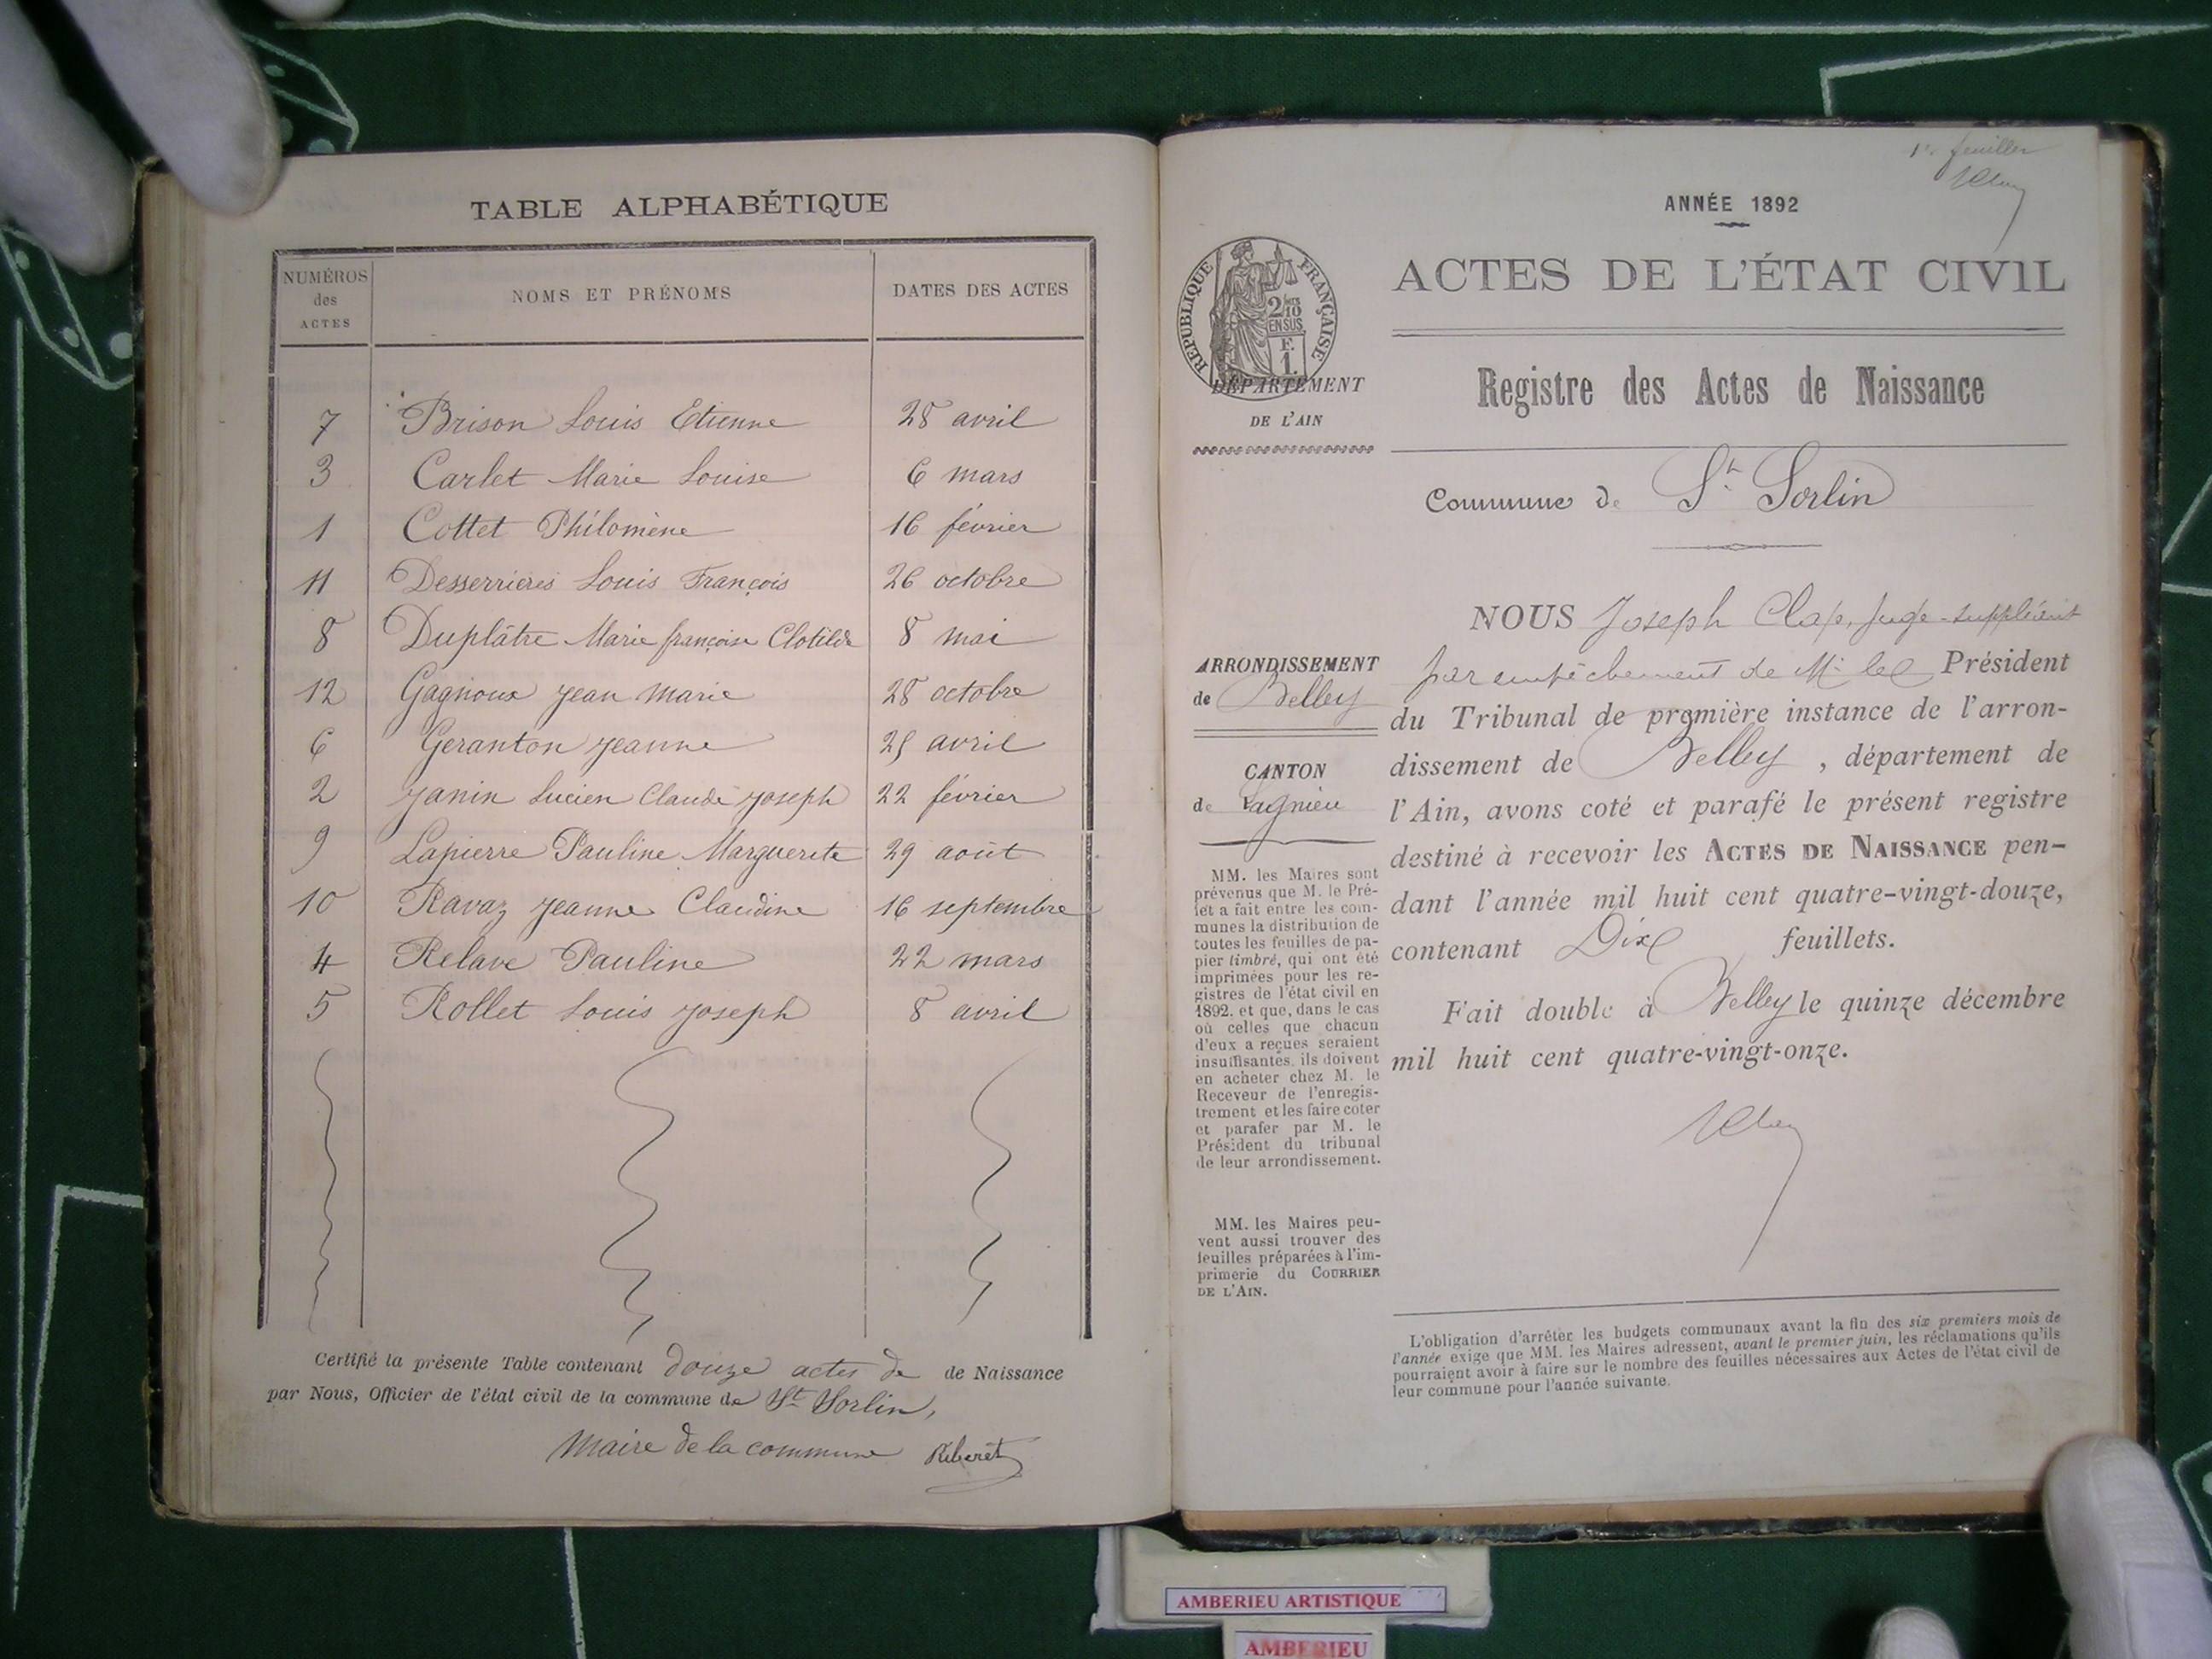 TABLE ALPHABÉTIQUE
NUMÉROS des ACTES NOMS ET PRÉNOMS DATES DES ACTES
7 Brison Louis Etienne 28 avril
3 Carlet Marie Louise 6 mars
1 Cottet Philomène 16 février
11 Desserrières Louis François 26 octobre
8 Duplâtre Marie françoise Clotilde 8 mai
12 Gagnoux Jean Marie 28 octobre
6 Geranton Jeanne 25 avril
2 Janin Lucien Claude Joseph 22 février
9 Lapierre Pauline Marguerite 29 août
10 Ravaz Jeanne Claudine 16 septembre
4 Relave Pauline 22 mars
5 Rollet Louis Joseph 8 avril
Certifié la présente Table contenant douze actes de de Naissance
par Nous, Officier de l'état civil de la commune de St Sorlin,
Maire de la commune Riberet
1er feuillet
ANNÉE 1892
RÉPUBLIQUE FRANÇAISE
2/10
EN SUS
F.
1.
DÉPARTEMENT
DE L'AIN
ACTES DE L'ÉTAT CIVIL
Registre des Actes de Naissance
Commune de St Sorlin
ARRONDISSEMENT
de Belley
CANTON
de Lagnieu
MM. les Maires sont
prévenus que M. le Pré-
fet a fait entre les com-
munes la distribution de
toutes les feuilles de pa-
pier timbré, qui ont été
imprimées pour les re-
gistres de l'état civil en
1892, et que, dans le cas
où celles que chacun
d'eux a reçues seraient
insuffisantes, ils doivent
en acheter chez M. le
Receveur de l'enregis-
trement et les faire coter
et parafer par M. le
Président du tribunal
de leur arrondissement.
MM. les Maires peu-
vent aussi trouver des
feuilles préparées à l'im-
primerie du COURRIER
DE L'AIN.
NOUS Joseph Clap, Juge-suppléant
par empêchement de Mr le Président
du Tribunal de première instance de l'arron-
dissement de Belley, département de
l'Ain, avons coté et parafé le présent registre
destiné à recevoir les ACTES DE NAISSANCE pen-
dant l'année mil huit cent quatre-vingt-douze,
contenant Dix feuillets.
Fait double à Belley le quinze décembre
mil huit cent quatre-vingt-onze.
L'obligation d'arrêter les budgets communaux avant la fin des six premiers mois de
l'année exige que MM. les Maires adressent, avant le premier juin, les réclamations qu'ils
pourraient avoir à faire sur le nombre des feuilles nécessaires aux Actes de l'état civil de
leur commune pour l'année suivante.
AMBERIEU ARTISTIQUE
AMBERIEU